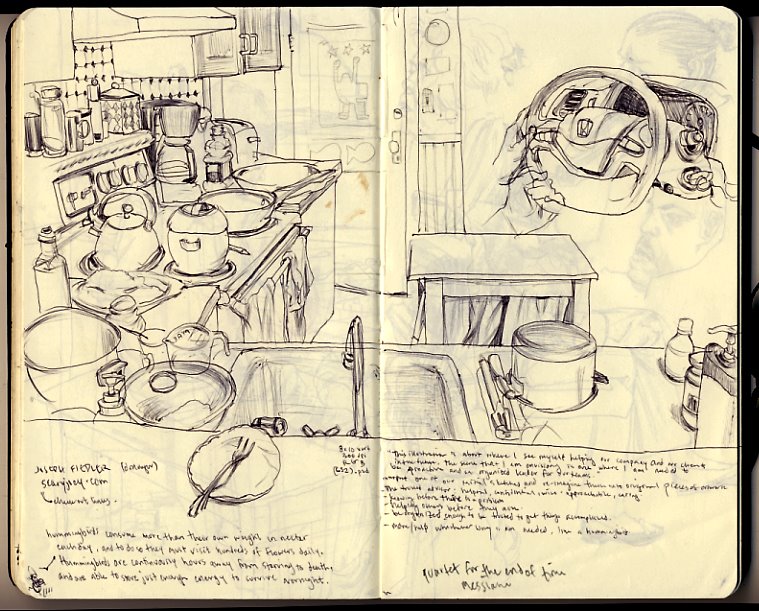 JOSEPH FIEDLER
scaryjoey.com
8x10 vert
300 dpi
RGB
(852).psd
hummingbirds consume more than their own weight in nectar
each day, and to do so they must visit hundreds of flowers daily.
Hummingbirds are continuously hours away from starving to death,
and are able to store just enough energy to survive overnight.
- This illustration is about where I see myself helping our company and our client
interaction. The scene that I am envisioning is one where I am
be proactive and an organized leader for
one of our and re-imagine them into original pieces of
The trusted advisor - helpful, confident voice - approachable, caring
- knowing before there is a problem
- helping others before they ask
- be organized enough to be trusted to get things accomplished.
- more/help whichever way is am needed, like a hummingbird
quartet for the end of time
Messiaen